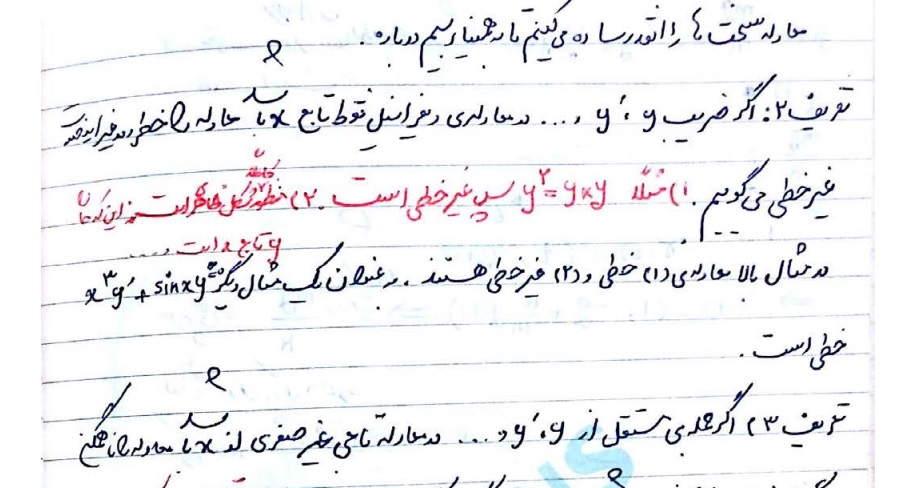 معادله سخت ها را انقدر ساده می کنیم تا به همینا برسیم دوباره.
تعریف ۲: اگر ضریب y ، y′ و ... در معادله ی دیفرانسیل فقط تابع x باشد معادله را خطی و در غیر این صورت
غیر خطی می گوییم. ۱) مثلاً y² = y×y پس غیر خطی است. ۲) منظور شکل ظاهر است نه این که
y تابع x است ...
در مثال بالا معادله ی (۱) خطی و (۲) غیر خطی هستند. به عنوان یک مثال دیگر x³y′ + sinxy = 0
خطی است.
تعریف ۳) اگر جمله ی مستقل از y ، y′ و ... در معادله تابعی غیر صفری از x باشد معادله را ناهمگن